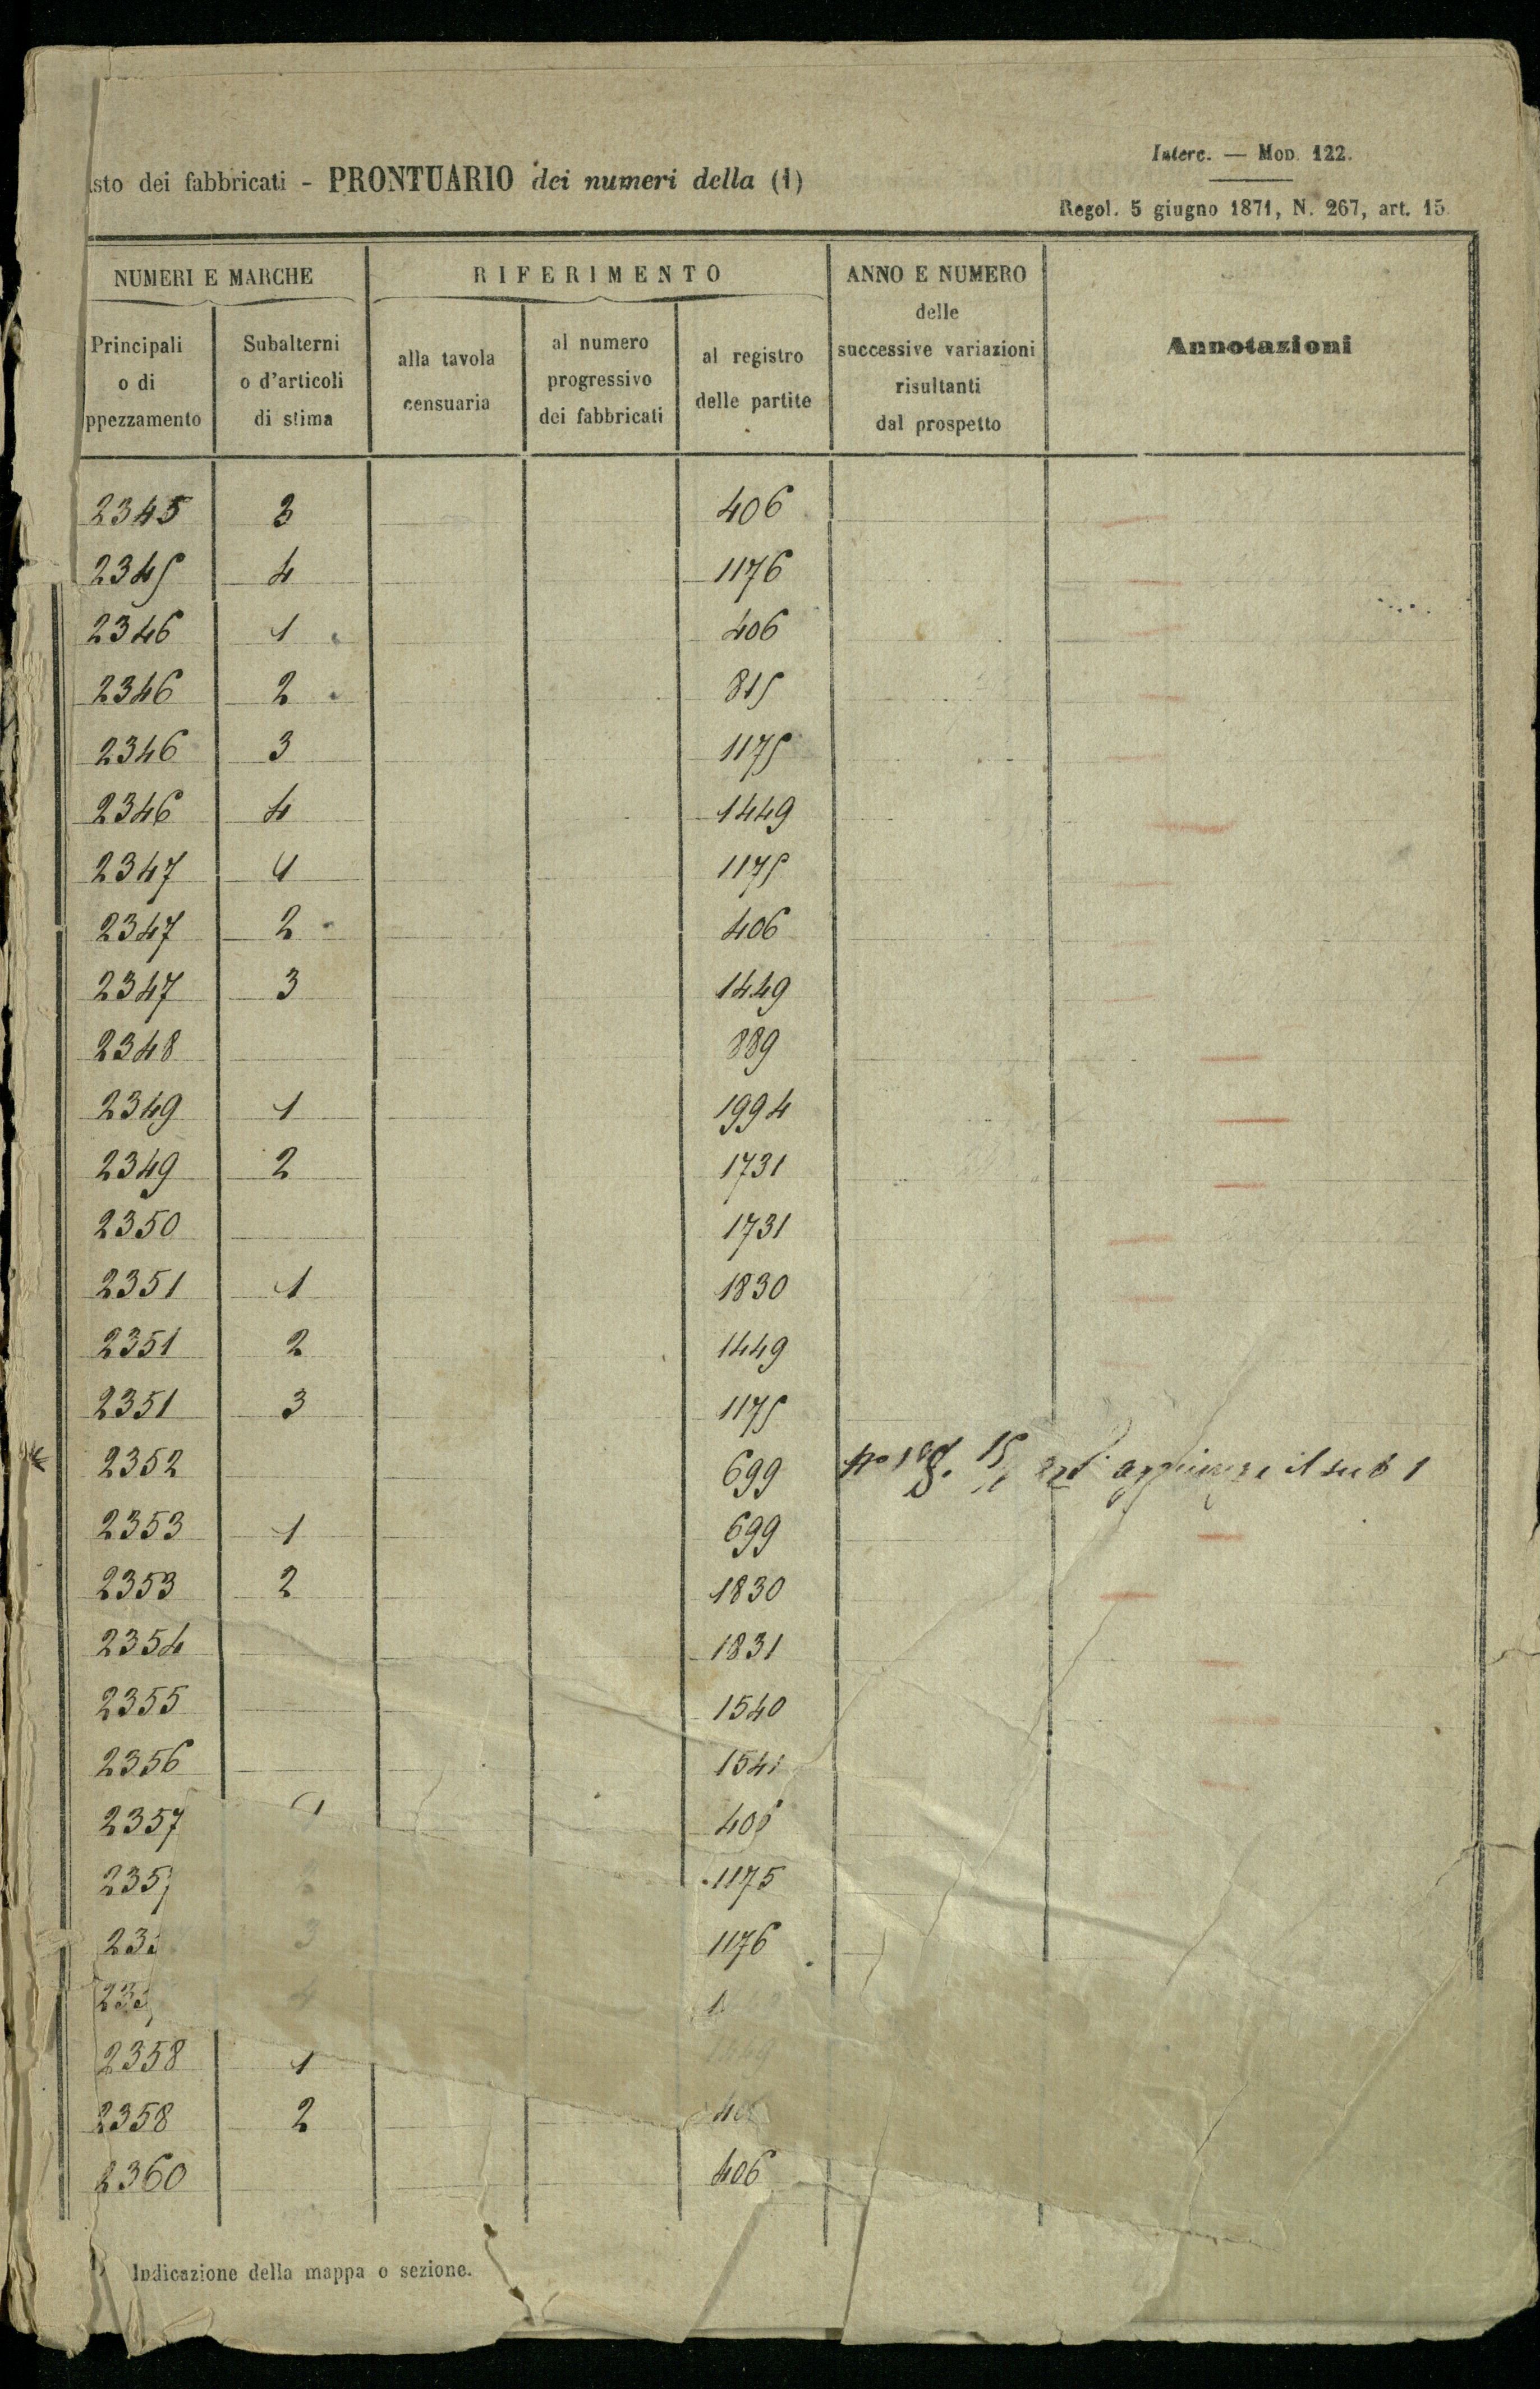 Interc. — Mod. 122.
sto dei fabbricati - PRONTUARIO dei numeri della (1)
Regol. 5 giugno 1871, N. 267, art. 15
NUMERI E MARCHE
RIFERIMENTO
ANNO E NUMERO
delle
successive variazioni
risultanti
dal prospetto
Annotazioni
Principali
o di
ppezzamento
Subalterni
o d'articoli
di stima
alla tavola
censuaria
al numero
progressivo
dei fabbricati
al registro
delle partite
2345 3 406
2345 4 1176
2346 1 406
2346 2 815
2346 3 1175
2346 4 1449
2347 1 1175
2347 2 406
2347 3 1449
2348 889
2349 1 1994
2349 2 1731
2350 1731
2351 1 1830
2351 2 1449
2351 3 1175
2352 699 il sub 1
2353 1 699
2353 2 1830
2354 1831
2355 1540
2356 1541
2357 1 406
235 1175
23 3 1176
23 4 1
2358 1 1449
2358 2 40
2360 406
Indicazione della mappa o sezione.